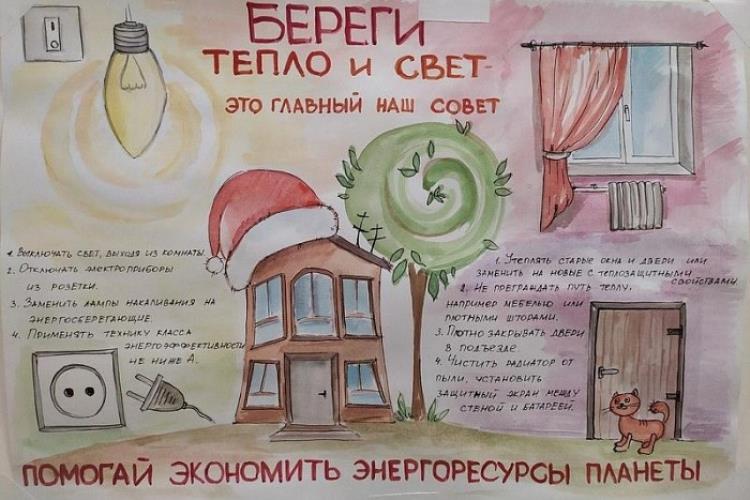 БЕРЕГИ
ТЕПЛО И СВЕТ-
ЭТО ГЛАВНЫЙ НАШ СОВЕТ
1. ВЫКЛЮЧАТЬ СВЕТ, ВЫХОДЯ ИЗ КОМНАТЫ.
2. ОТКЛЮЧАТЬ ЭЛЕКТРОПРИБОРЫ
ИЗ РОЗЕТКИ.
3. ЗАМЕНИТЬ ЛАМПЫ НАКАЛИВАНИЯ НА
ЭНЕРГОСБЕРЕГАЮЩИЕ.
4. ПРИМЕНЯТЬ ТЕХНИКУ КЛАССА
ЭНЕРГОЭФФЕКТИВНОСТИ
НЕ НИЖЕ А.
1. УТЕПЛЯТЬ СТАРЫЕ ОКНА И ДВЕРИ ИЛИ
ЗАМЕНИТЬ НА НОВЫЕ С ТЕПЛОЗАЩИТНЫМИ
СВОЙСТВАМИ.
2. НЕ ПРЕГРАЖДАТЬ ПУТЬ ТЕПЛУ,
НАПРИМЕР МЕБЕЛЬЮ ИЛИ
ПЛОТНЫМИ ШТОРАМИ.
3. ПЛОТНО ЗАКРЫВАТЬ ДВЕРИ
В ПОДЪЕЗДЕ
4. ЧИСТИТЬ РАДИАТОР ОТ
ПЫЛИ, УСТАНОВИТЬ
ЗАЩИТНЫЙ ЭКРАН МЕЖДУ
СТЕНОЙ И БАТАРЕЕЙ.
ПОМОГАЙ ЭКОНОМИТЬ ЭНЕРГОРЕСУРСЫ ПЛАНЕТЫ